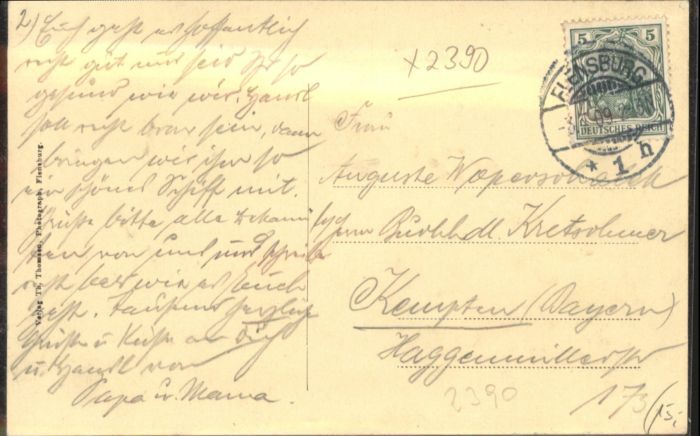 2) Euch geht es hoffentlich
recht gut und seid Ihr so
gesund wie wir. Hansl
soll recht brav sein, dann
bringen wir ihm so
ein schönes Schiff mit.
Grüße bitte alle Bekann
ten von uns und schreibe
recht bald wie es Euch
geht. Tausend herzliche
Grüße u. Küsse an Dich
u. Hansl von
Papa u. Mama.
Verlag Th. Thomsen, Photograph, Flensburg.
x2390
5 5
DEUTSCHES REICH
FLENSBURG
09
* 1 h
Frau
Auguste
bei Herrn Buchhdl. Kretschmer
Kempten (Bayern)
Haggenmüllerstr
2390
173
15,-